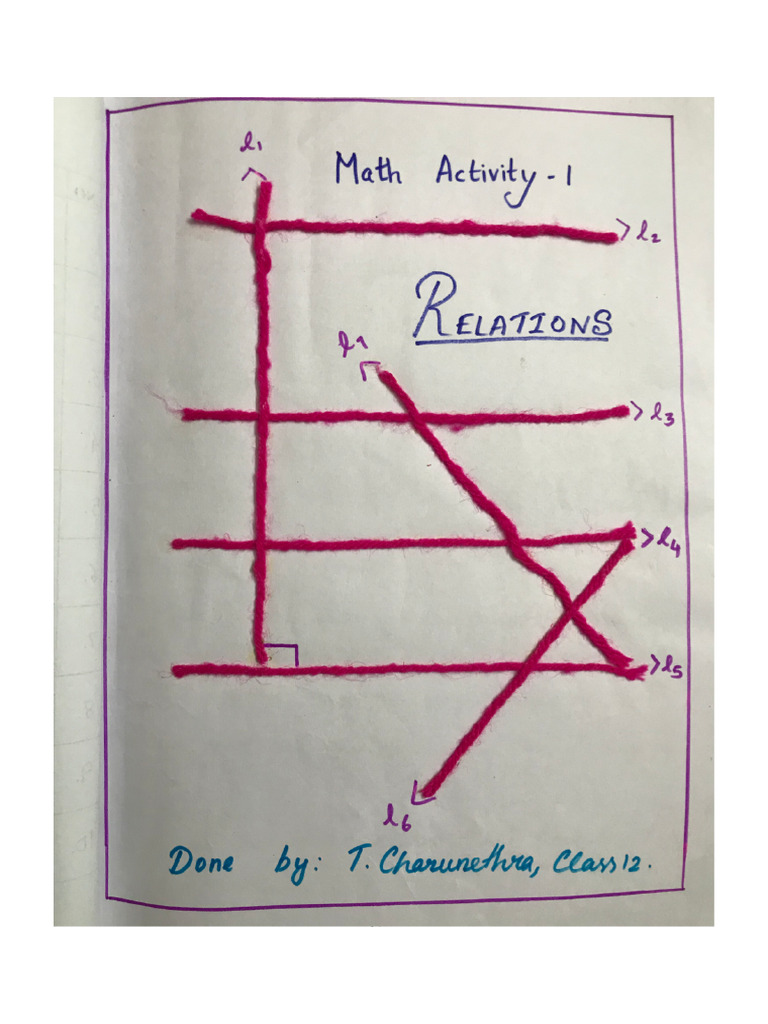 l1
Math Activity - 1
l2
RELATIONS
l7
l3
l4
l5
l6
Done by: T. Charunethra, Class 12.